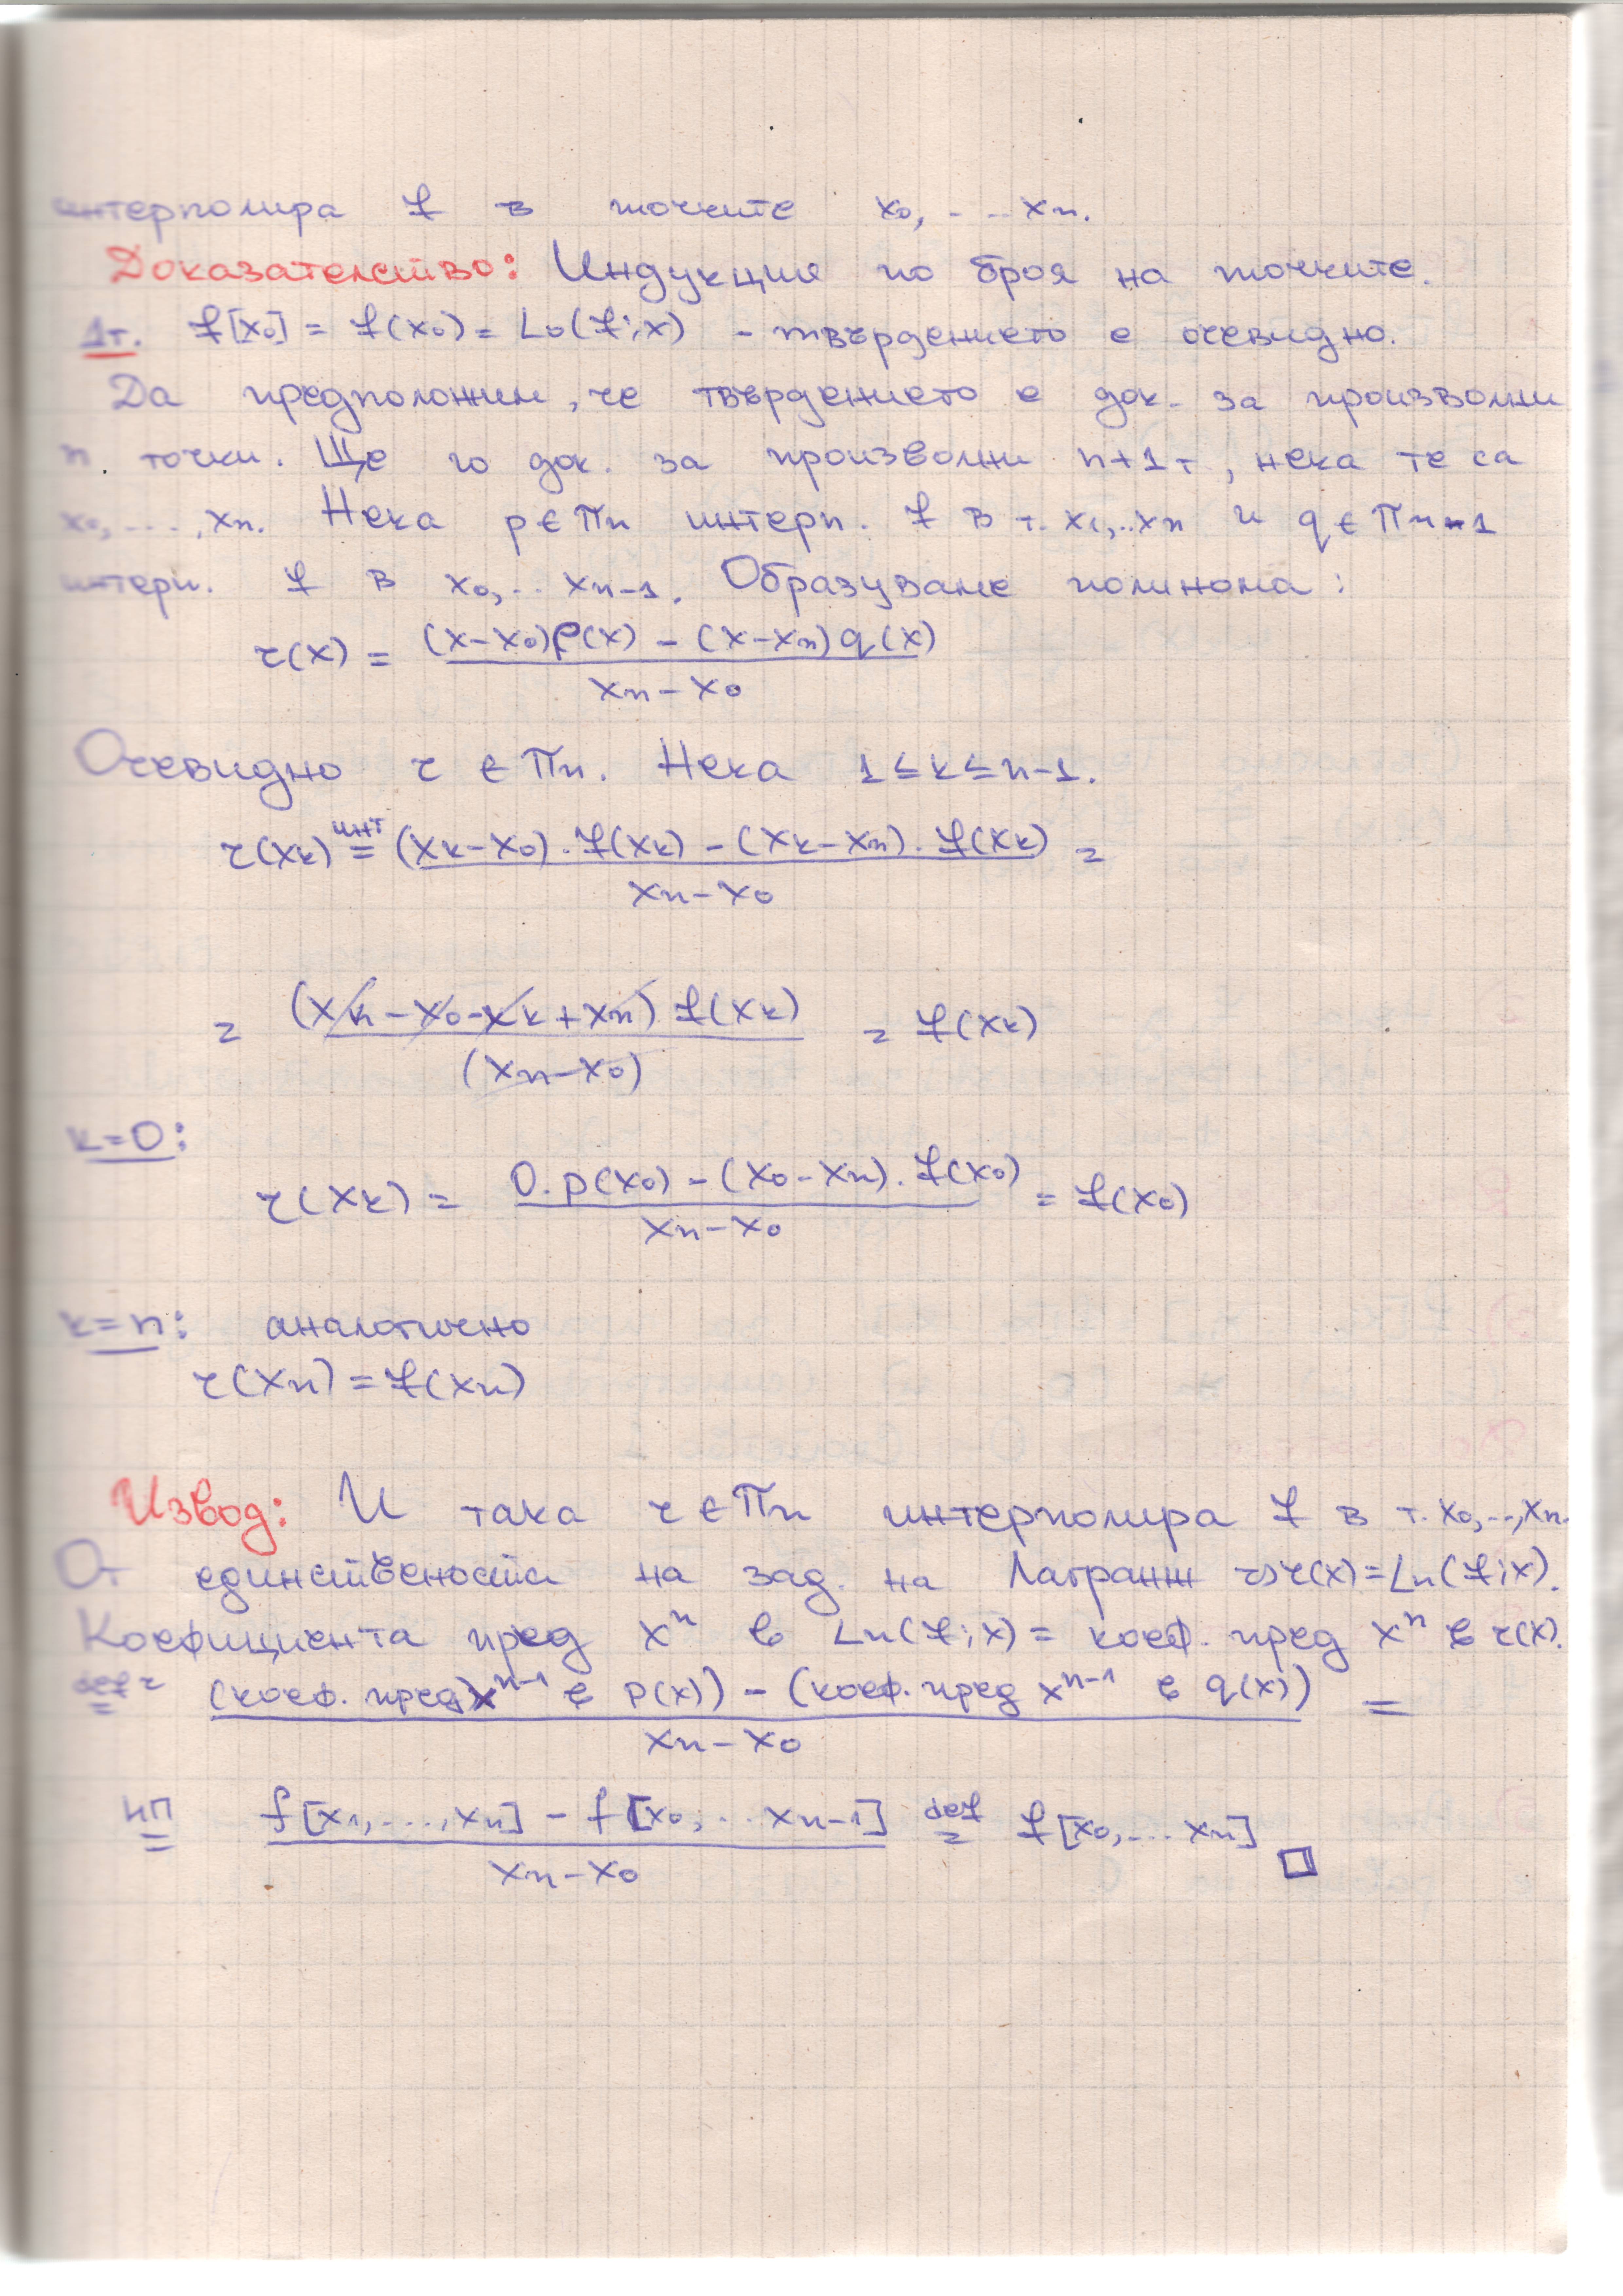 интерполира f в точките x₀, ... xₙ.
Доказателство: Индукция по броя на точките.
1т. f[x₀] = f(x₀) = L₀(f;x) - твърдението е очевидно.
Да предположим, че твърдението е док. за произволни
n точки. Ще го док. за произволни n+1 т, нека те са
x₀, ..., xₙ. Нека p ∈ Πₙ интерп. f в т. x₁,..xₙ и q ∈ Πₙ₋₁
интерп. f в x₀,.. xₙ₋₁. Образуваме полинома:
r(x) = ((x-x₀)p(x) - (x-xₙ)q(x)) / (xₙ-x₀)
Очевидно r ∈ Πₙ. Нека 1 ≤ k ≤ n-1.
r(xₖ) =(инт) ((xₖ-x₀).f(xₖ) - (xₖ-xₙ).f(xₖ)) / (xₙ-x₀) =
= ((xₖ-x₀-xₖ+xₙ) f(xₖ)) / (xₙ-x₀) = f(xₖ)
k=0:
r(xₖ) = (0.p(x₀) - (x₀-xₙ).f(x₀)) / (xₙ-x₀) = f(x₀)
k=n: аналогично
r(xₙ) = f(xₙ)
Извод: И така r ∈ Πₙ интерполира f в т. x₀,..,xₙ.
От единствеността на зад. на Лагранж => r(x) = Lₙ(f;x).
Коефициента пред xⁿ в Lₙ(f;x) = коеф. пред xⁿ в r(x).
=(def r) ((коеф. пред xⁿ⁻¹ в p(x)) - (коеф. пред xⁿ⁻¹ в q(x))) / (xₙ-x₀) =
=(ИП) (f[x₁,...,xₙ] - f[x₀,.. xₙ₋₁]) / (xₙ-x₀) =(def) f[x₀,... xₙ] □